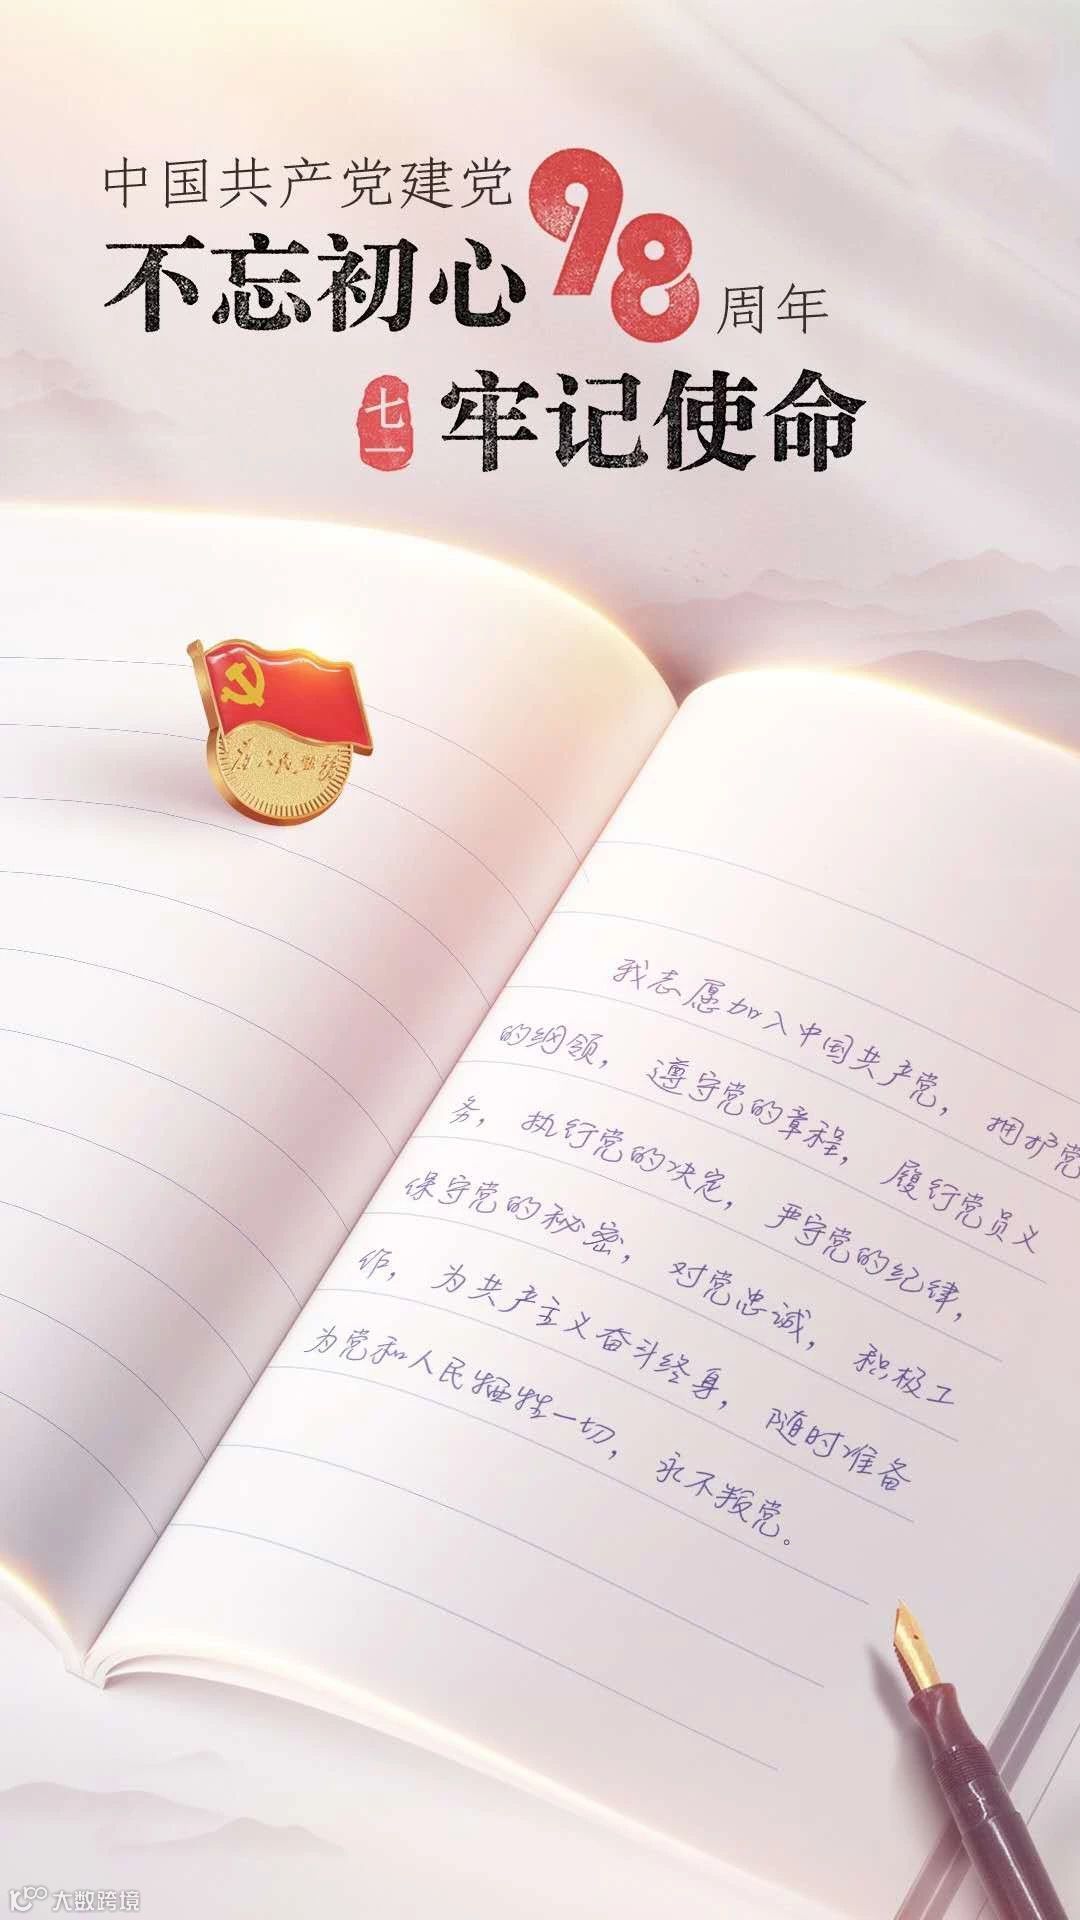 中国共产党建党98周年
不忘初心
七一
牢记使命
为人民服务
我志愿加入中国共产党，拥护党
的纲领，遵守党的章程，履行党员义
务，执行党的决定，严守党的纪律，
保守党的秘密，对党忠诚，积极工
作，为共产主义奋斗终身，随时准备
为党和人民牺牲一切，永不叛党。
大数跨境